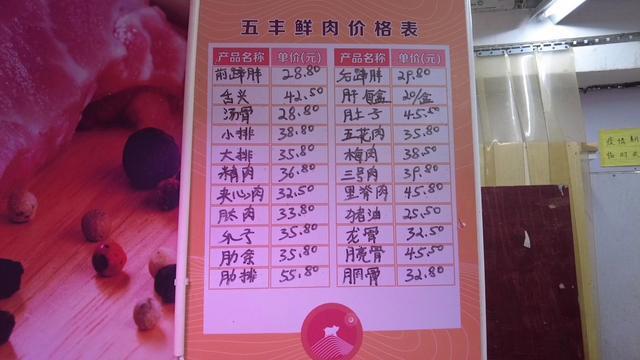 五丰鲜肉价格表
产品名称 单价(元) 产品名称 单价(元)
前蹄胖 28.80 后蹄胖 29.80
舌头 42.50 肝每盒 20/盒
汤骨 28.80 肚子 45.50
小排 38.80 五花肉 35.80
大排 35.80 梅肉 38.50
精肉 36.80 三号肉 39.80
夹心肉 32.50 里脊肉 45.80
肉 33.80 猪油 25.50
爪子 35.80 龙骨 32.50
肋条 35.80 骨 45.50
肋排 55.80 骨 32.80
疫情期
临时